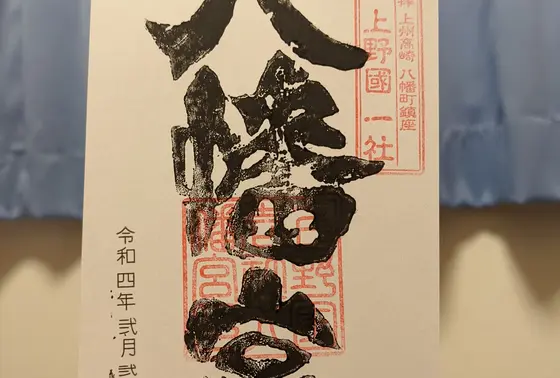 上州高崎 八幡町鎮座
上野國一社
八幡宮
令和四年弐月弐